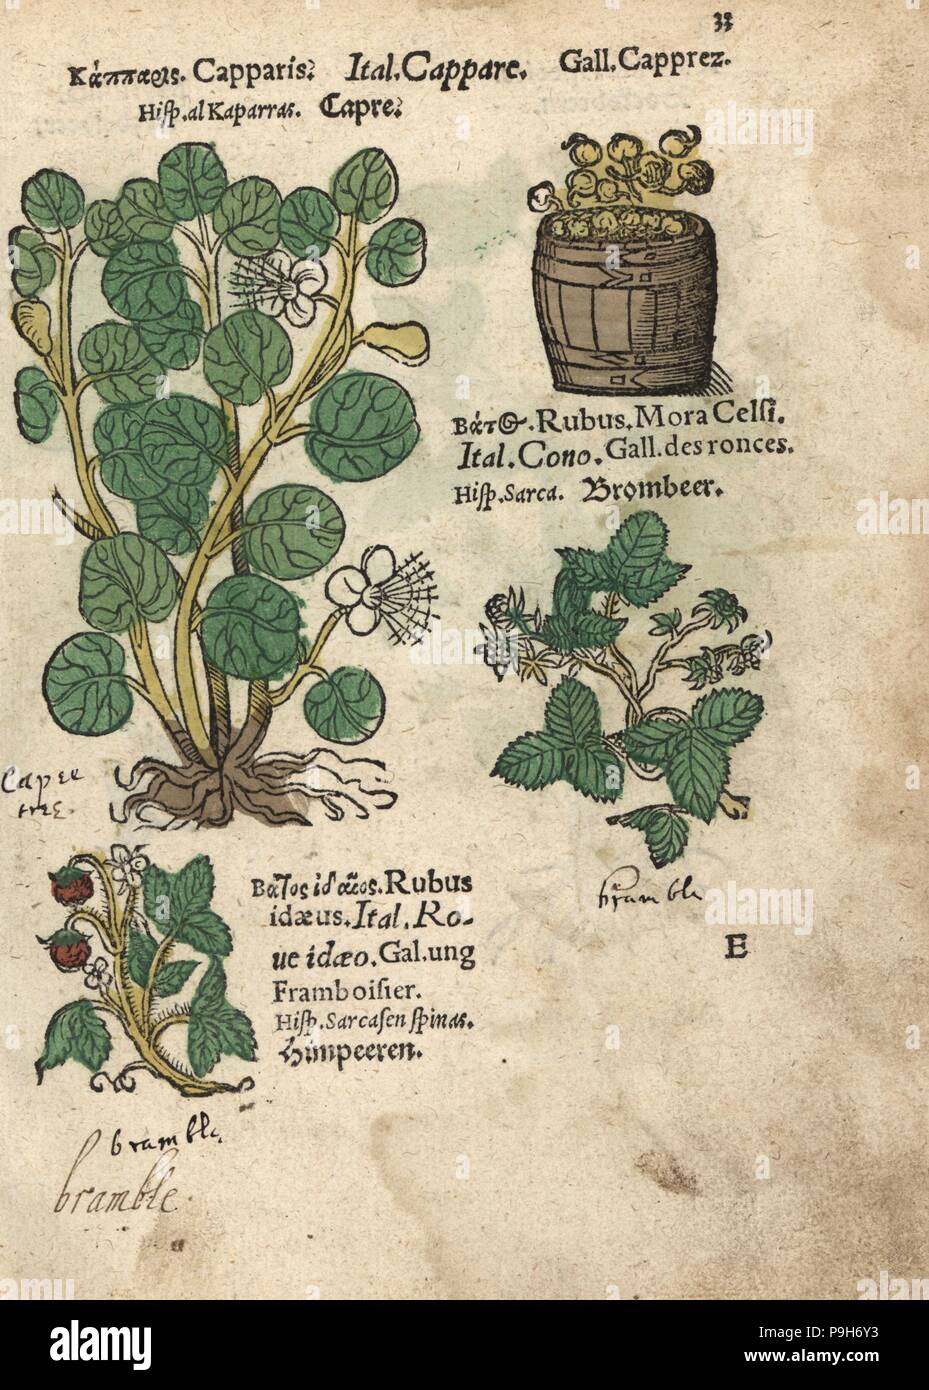 33
Κάππαρις. Capparis. Ital. Cappare. Gall. Capprez.
Hiſp. al Kaparras. Capre.
Βάτος. Rubus. Mora Celſi.
Ital. Cono. Gall. des ronces.
Hiſp. Sarca. Brombeer.
Caper
tree.
bramble
Βάτος ἰδαῖος. Rubus
idæus. Ital. Ro-
ue idæo. Gal. ung
Framboiſier.
Hiſp. Sarcaſen ſpinas.
Himpeeren.
E
bramble
bramble
alamy
Image ID: P9H6Y3
www.alamy.com